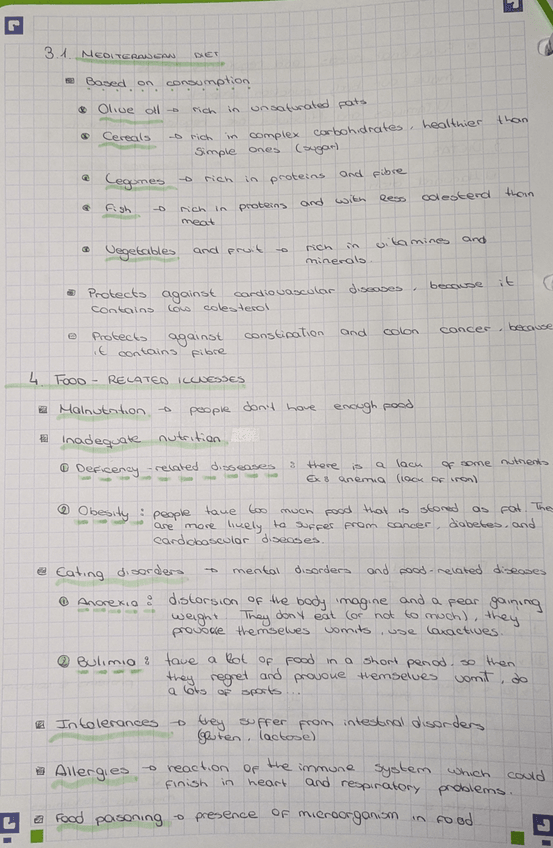 3.1 MEDITERANEAN DIET
Based on consumption
Olive oil → rich in unsaturated fats
Cereals → rich in complex carbohidrates, healthier than
simple ones (sugar)
Legumes → rich in proteins and fibre
Fish → rich in proteins and with less colesterol than
meat
Vegetables and fruit → rich in vitamines and
minerals
Protects against cardiovascular diseases, because it
contains low colesterol
Protects against constipation and colon cancer, because
it contains fibre
4. FOOD-RELATED ILLNESSES
Malnutrition → people don't have enough food
Inadequate nutrition
① Deficency-related disseases: there is a lack of some nutrients
Ex: anemia (lack of iron)
② Obesity: people take too much food that is stored as fat. The
are more lively to suffer from cancer, diabetes, and
cardiobascular diseases.
Eating disorders → mental disorders and food-related diseases
① Anorexia: distorsion of the body imagine and a fear gaining
weight. They don't eat (or not to much), they
provoke themselves vomits, use laxactives.
② Bulimia: take a lot of food in a short period, so then
they regret and provoke themselves vomit, do
a lots of sports...
Intolerances → they suffer from intestinal disorders
(gluten, lactose)
Allergies → reaction of the immune system which could
finish in heart and respiratory problems.
Food poisoning → presence of microorganism in food